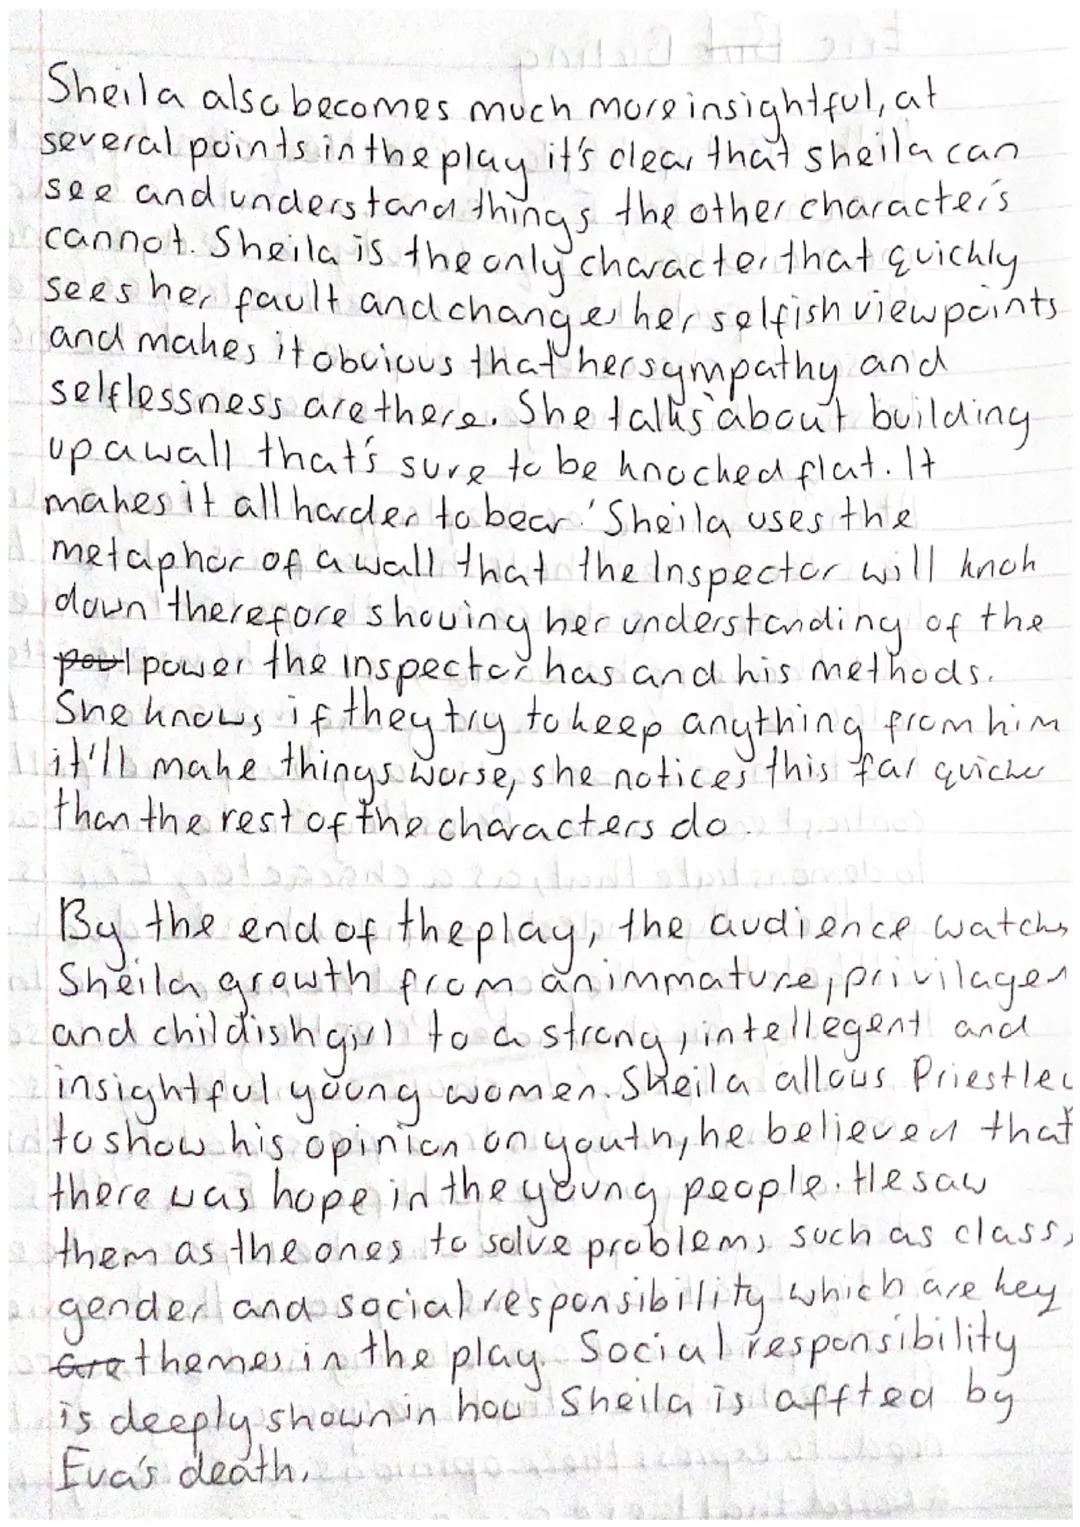 Sheila also becomes much more insightful, at
several points in the play it's clear that sheila can
see and understand things the other characters
cannot. Sheila is the only character that quickly
sees her fault and changes her selfish viewpoints
and makes it obvious that her sympathy and
selflessness are there. She talks about building
up a wall that's sure to be knocked flat. It
makes it all harder to bear.' Sheila uses the
metaphor of a wall that the Inspector will knok
down therefore showing her understanding of the
power the inspector has and his methods.
She knows if they try to keep anything from him
it'll make things worse, she notices this far quicker
than the rest of the characters do.
By the end of the play, the audience watchs
Sheila growth from an immature, privilaged
and childish girl to a strong, intellegent and
insightful young women. Sheila allows Priestley
to show his opinion on youth, he believed that
there was hope in the young people. He saw
them as the ones to solve problems such as class,
gender and social responsibility which are key
are themes in the play. Social responsibility
is deeply shown in how Sheila is affted by
Eva's death.